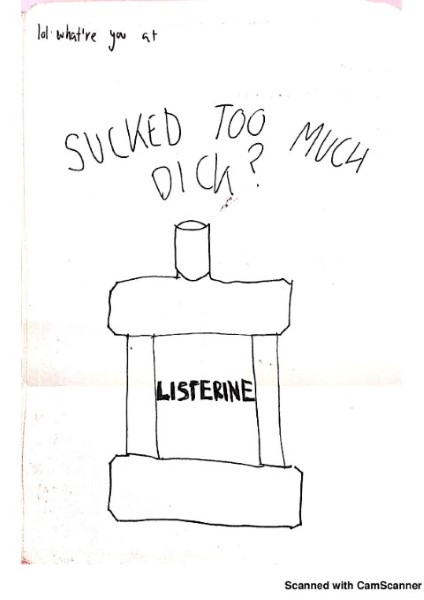 lol what're you at
SUCKED TOO MUCH
DICK?
LISTERINE
Scanned with CamScanner